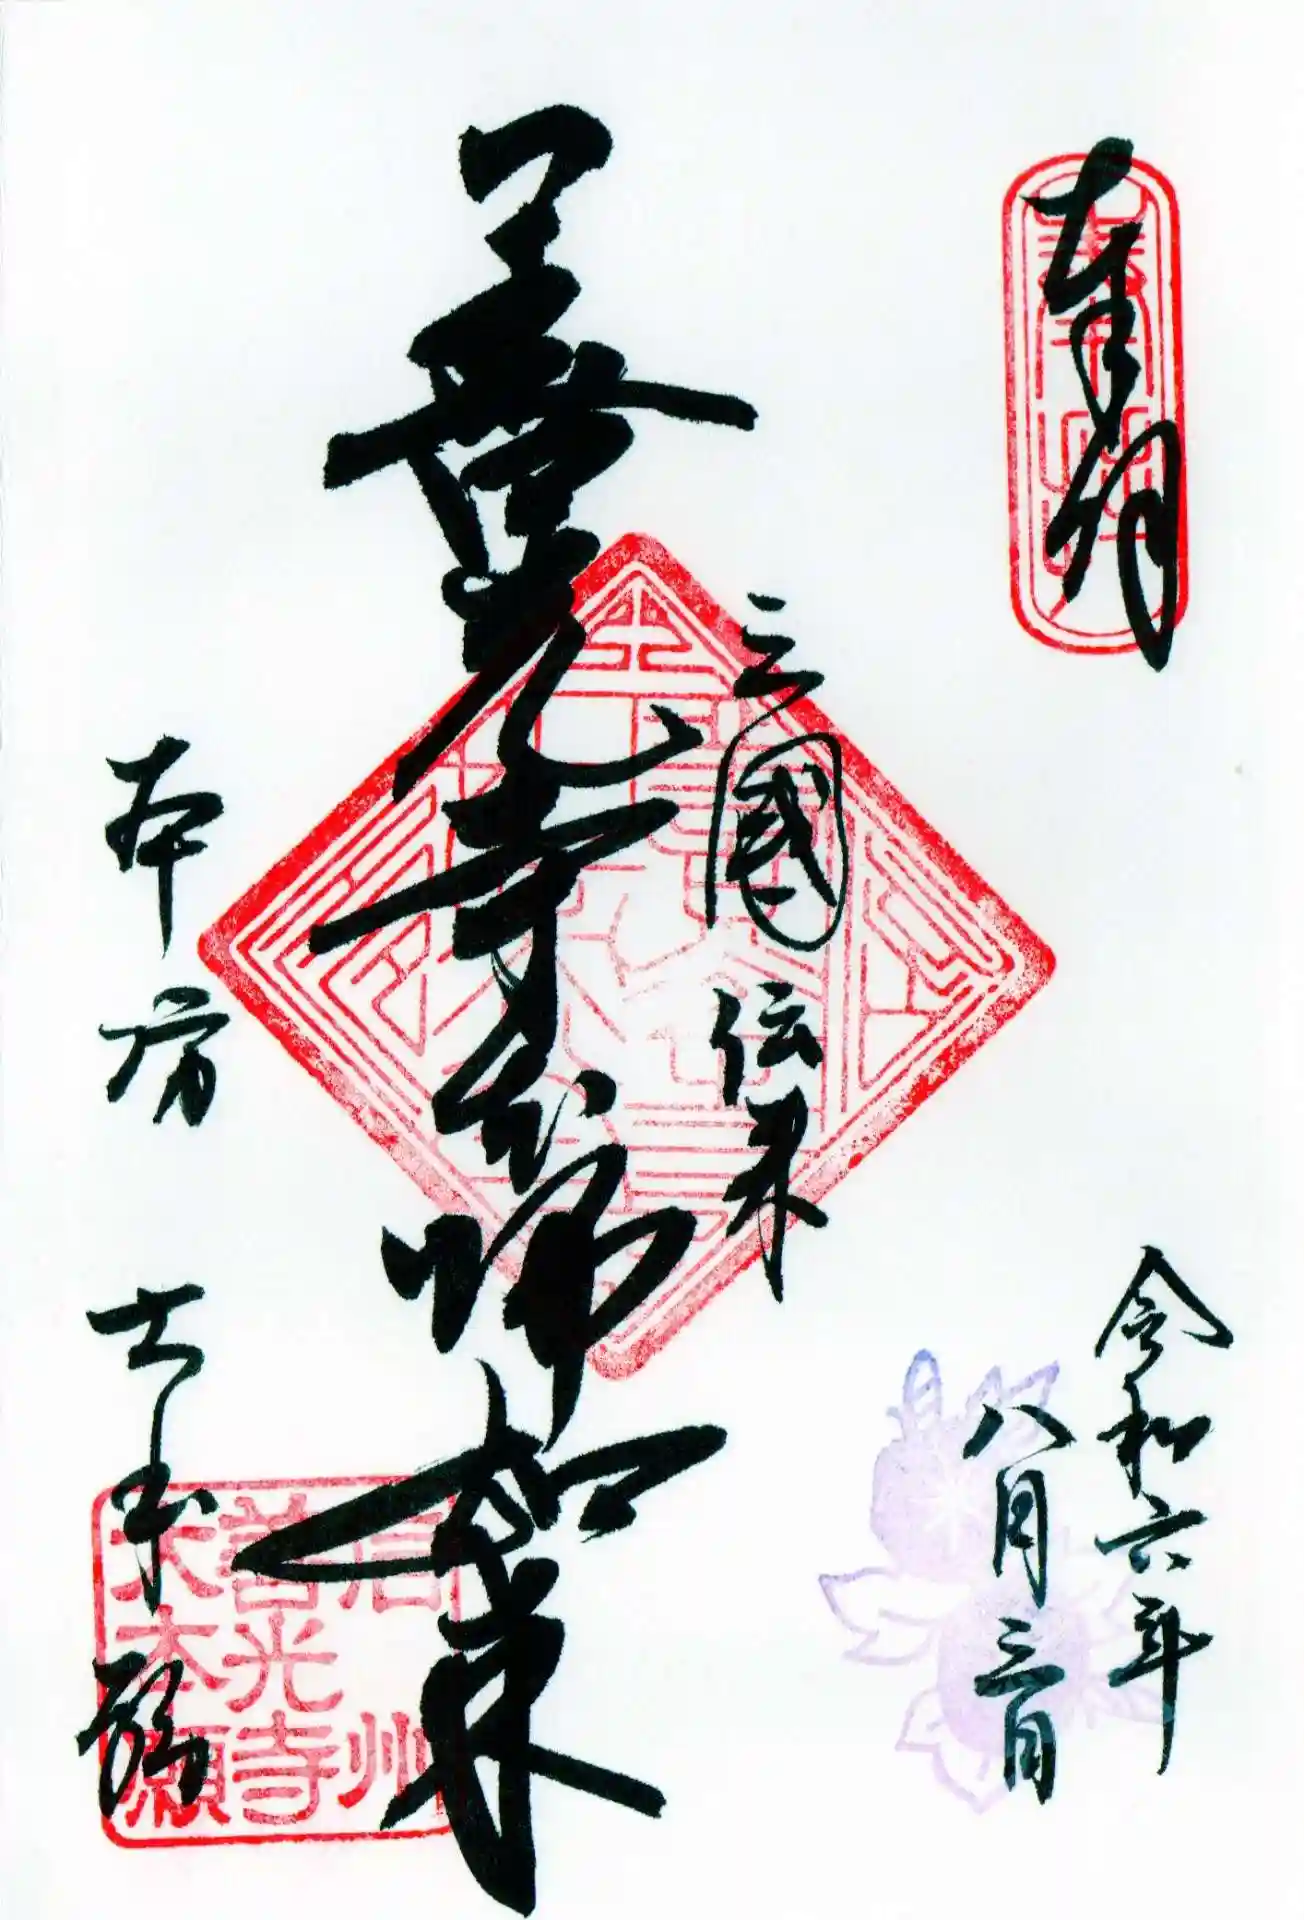 奉拝
令和六年
八月三日
三國伝来
善光寺如来
本坊
大本願
信州
善光寺
大本願